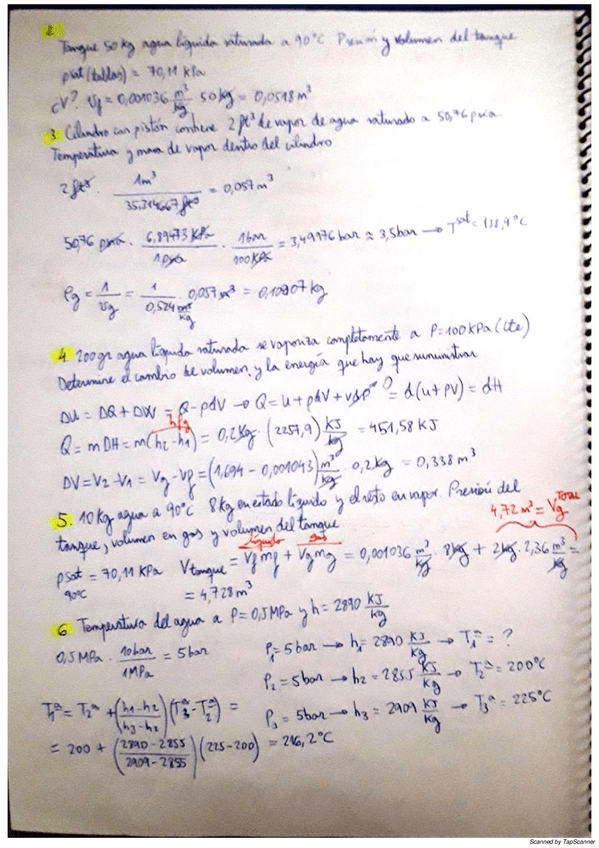 2
Tanque 50 kg agua líquida saturada a 90°C Presión y volumen del tanque
psat (tablas) = 70,11 kPa
¿V? Vf = 0,001036 m³/kg 50 kg = 0,0518 m³
3 Cilindro con pistón contiene 2 ft³ de vapor de agua saturado a 50,76 psia.
Temperatura y masa de vapor dentro del cilindro
2 ft³ · 1m³/35,314667 ft³ = 0,057 m³
50,76 psia · 6,89473 KPa/1 psia · 1bar/100KPa = 3,49976 bar ≈ 3,5bar → Tsat = 138,9°C
ρg = 1/vg = 1/0,524 m³/kg · 0,057 m³ = 0,10907 kg
4. 200gr agua líquida saturada se vaporiza completamente a P=100KPa (cte)
Determine el cambio de volumen, y la energía que hay que suministrar
ΔU = ΔQ + ΔW = Q - pdV → Q = u + pdV + vdp 0 = d(u + PV) = dH
hfg
Q = mDH = m(h2-h1) = 0,2kg · (2257,9) KJ/kg = 451,58 KJ
DV = V2 - V1 = Vg - Vf = (1,694 - 0,001043) m³/kg · 0,2kg = 0,338 m³
5. 10Kg agua a 90°C 8kg en estado líquido y el resto en vapor. Presión del
tanque, volumen en gas y volumen del tanque
4,72 m³ = Vg TOTAL
líquido gas
psat 90°C = 70,11 KPa Vtanque = Vf mf + Vg mg = 0,001036 m³/kg · 8kg + 2kg · 2,36 m³/kg =
= 4,728 m³
6 Temperatura del agua a P=0,5MPa y h = 2890 KJ/kg
0,5MPa · 10bar/1MPa = 5bar
P1 = 5bar → h1 = 2890 KJ/kg → T1ª = ?
P2 = 5bar → h2 = 2855 KJ/kg → T2ª = 200°C
P3 = 5bar → h3 = 2909 KJ/kg → T3ª = 225°C
T1ª = T2ª + (h1-h2/h3-h2)(T3ª-T2ª) =
= 200 + (2890-2855/2909-2855)(225-200) = 216,2°C
Scanned by TapScanner